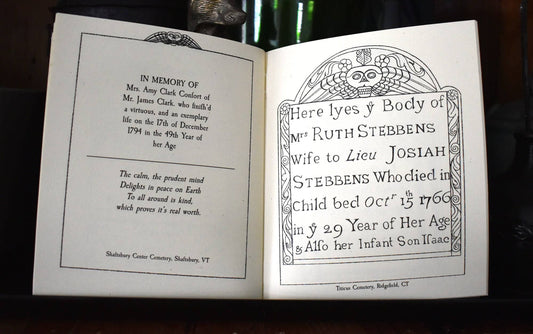 IN MEMORY OF
Mrs. Amy Clark Confort of
Mr. James Clark. who finish'd
a virtuous, and an exemplary
life on the 17th of December
1794 in the 49th Year of
her Age
The calm, the prudent mind
Delights in peace on Earth
To all around is kind,
which proves it's real worth.
Shaftsbury Center Cemetery, Shaftsbury, VT
Here lyes yͤ Body of
Mrs RUTH STEBBENS
Wife to Lieu JOSIAH
STEBBENS Who died in
Child bed Octr 15th 1766
in yͤ 29 Year of Her Age
& Also her Infant Son Isaac
Titicus Cemetery, Ridgefield, CT